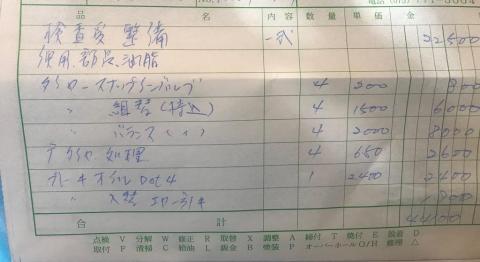 品 名 内容 数量 単価 金
検査受整備 一式 22500
使用部品油脂
タイヤースナップインバルブ 4 200 800
〃 組替(持込) 4 1500 6000
〃 バランス(〃) 4 2000 8000
廃タイヤ処理 4 650 2600
ブレーキオイル Dot4 1 2400 2400
〃 入替 エアー引キ 1800
合 計 44100
点検 V 分解 W 修正 R 取替 X 調整 A 締付 T 焼付 E 脱着 D
取付 F 清掃 C 給油 L 鈑金 B 塗装 P オーバーホール O/H 修理 △